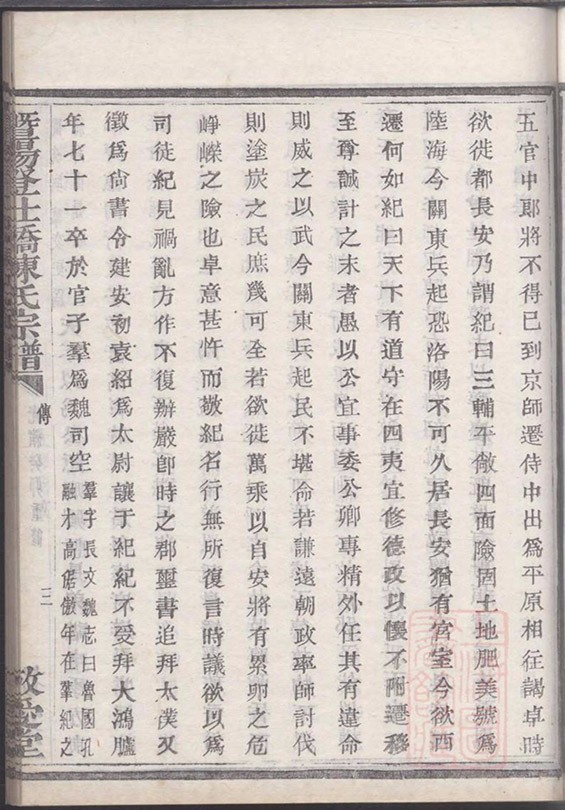 五官中郎將不得已到京師遷侍中出爲平原相往謁卓時
欲徙都長安乃謂紀曰三輔平敞四面險固土地肥美號爲
陸海今關東兵起恐洛陽不可久居長安猶有宮室今欲西
遷何如紀曰天下有道守在四夷宜修德政以懷不附遷移
至尊誠計之末者愚以公宜事委公卿專精外任其有違命
則威之以武今關東兵起民不堪命若謙遠朝政率師討伐
則塗炭之民庶幾可全若欲徙萬乘以自安將有累卵之危
崢嶸之險也卓意甚忤而敬紀名行無所復言時議欲以爲
司徒紀見禍亂方作不復辦嚴卽時之郡璽書追拜太僕又
徵爲尙書令建安初袁紹爲太尉讓于紀紀不受拜大鴻臚
年七十一卒於官子羣爲魏司空
羣字長文魏志曰魯國孔
融才高倨傲年在羣紀之
暨陽登仕橋陳氏宗譜
傳
三
敦睦堂